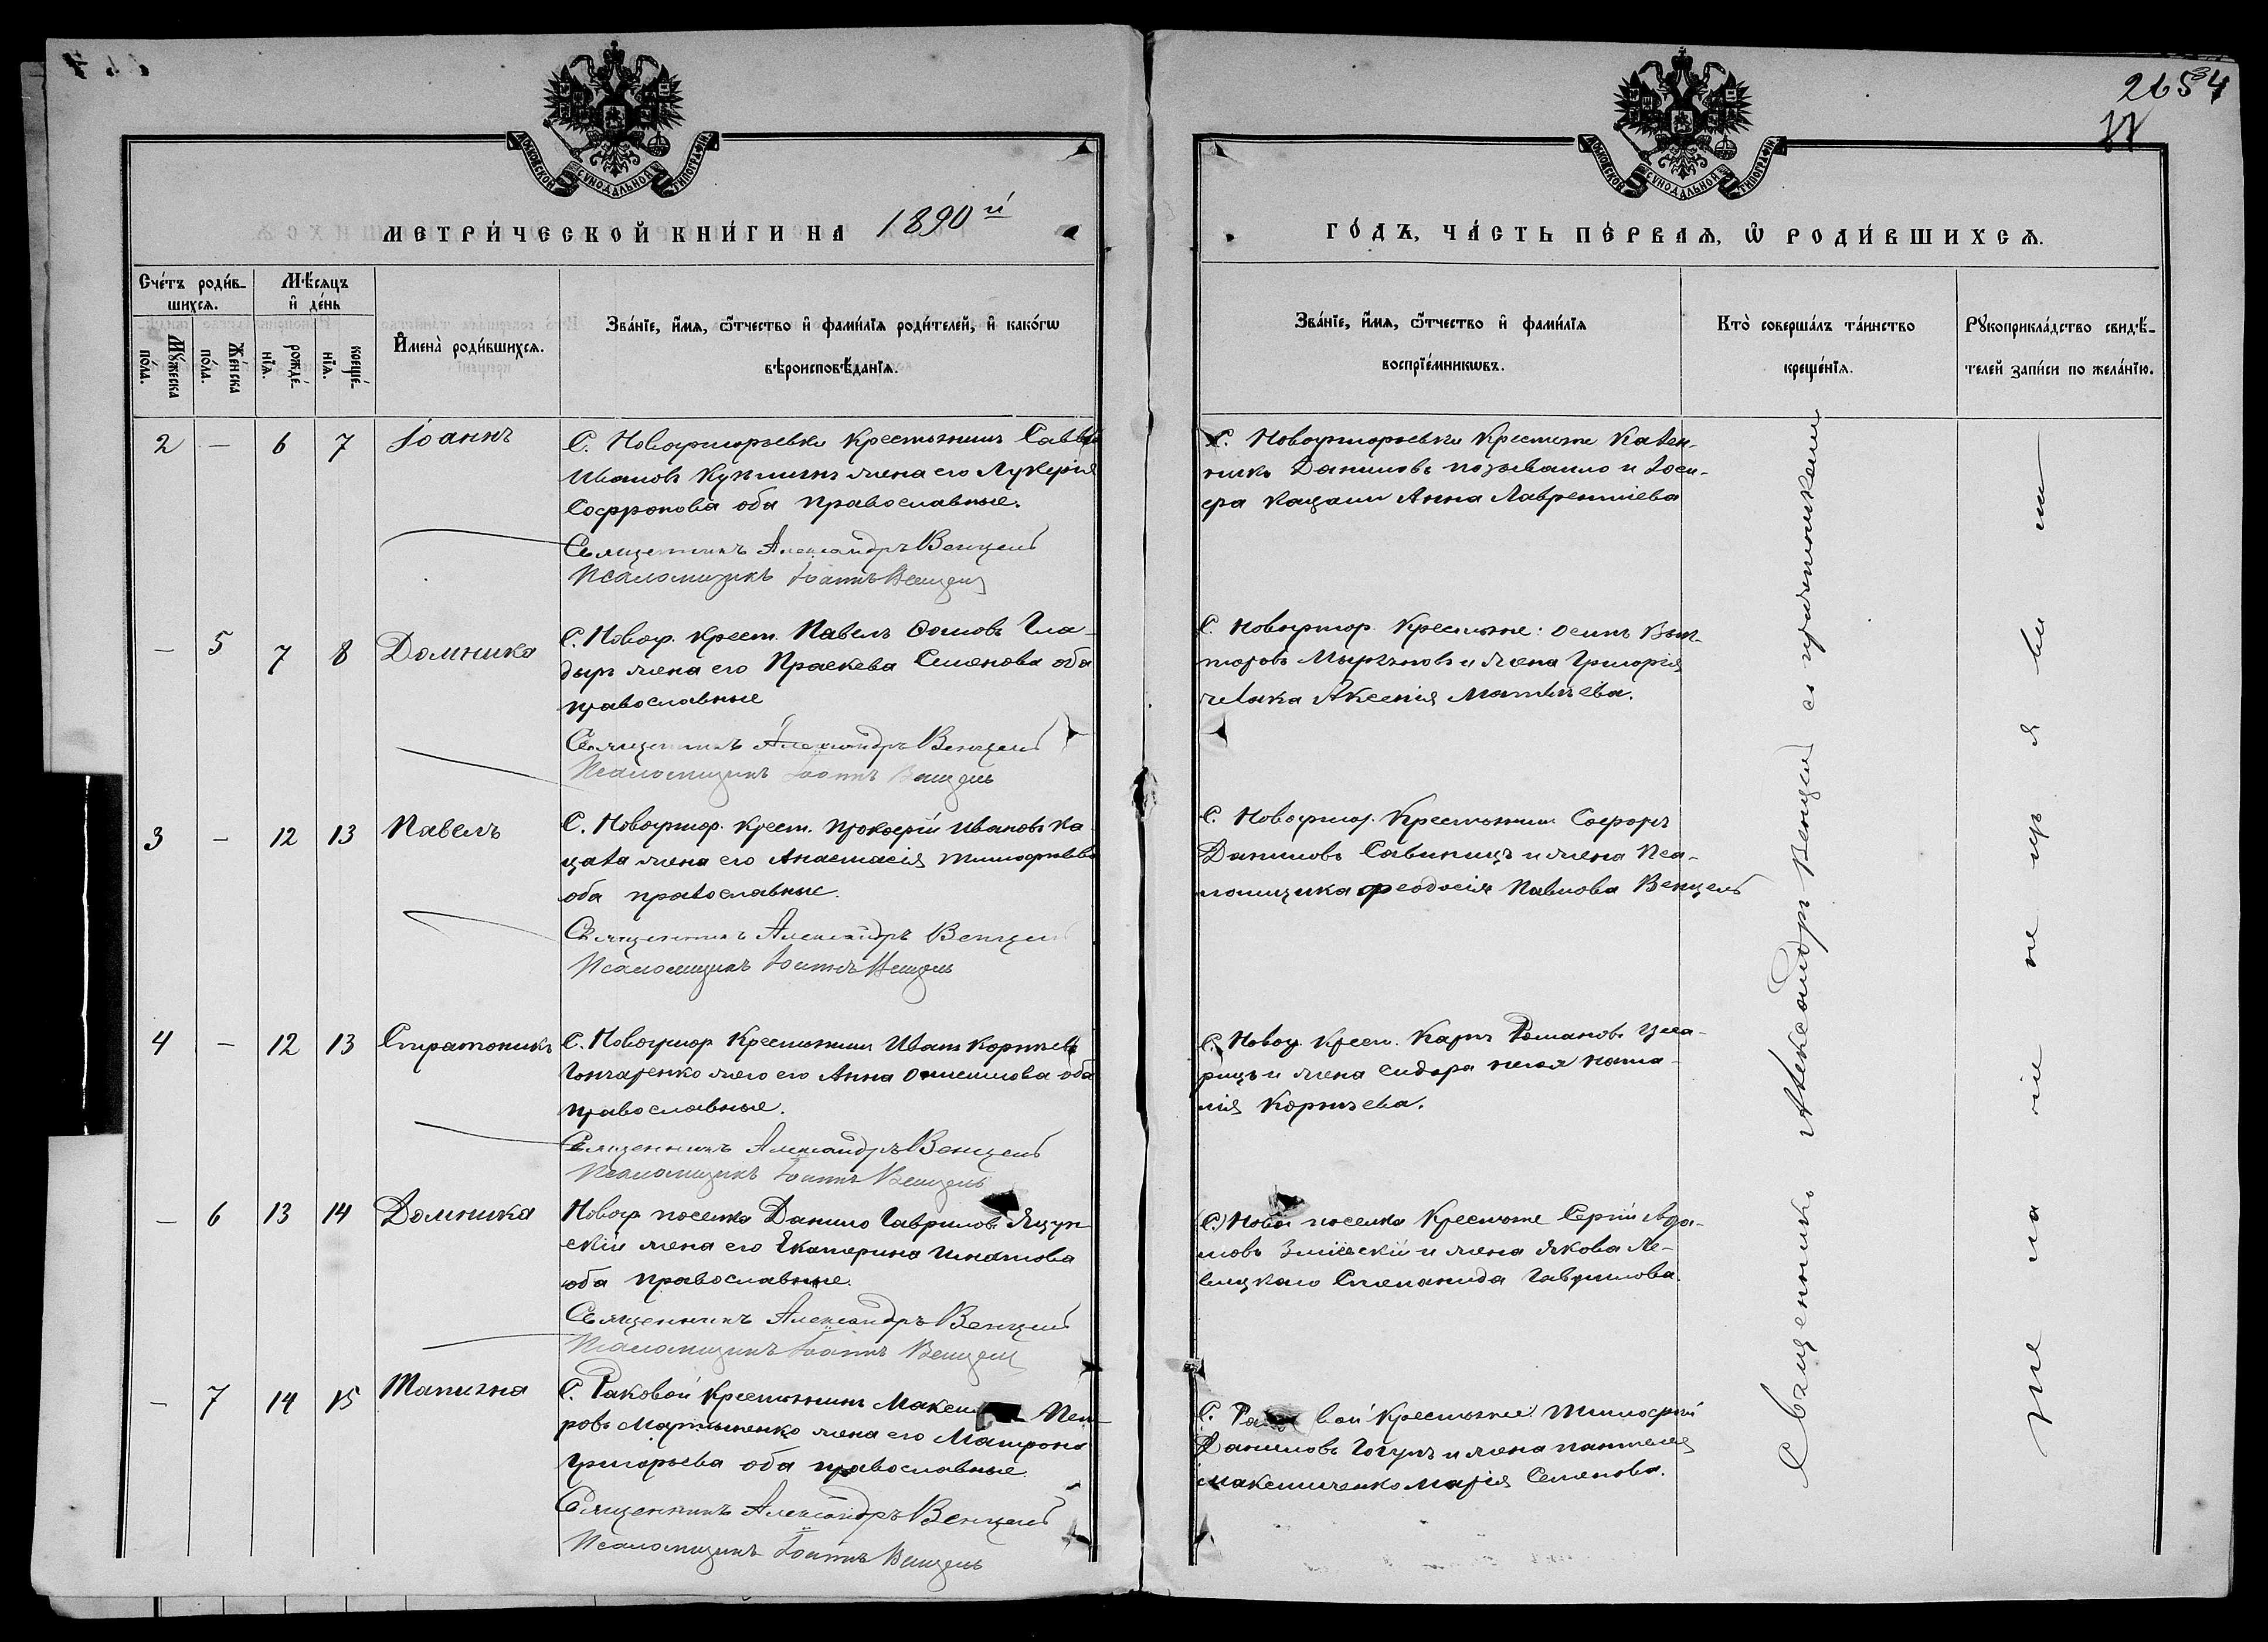 МОСКОВСКОЙ СѴНОДАЛЬНОЙ ТИПОГРАФІИ
МЕТРИ́ЧЕСКОЙ КНИ́ГИ НА 1890й
Сче́тъ роди́в-
шихсѧ.
Мѣ́сѧцъ
и҆ де́нь
Мꙋ́жеска
по́ла.
Же́нска
по́ла.
рожде́-
нїѧ.
креще́-
нїѧ.
И҆мена̀ роди́вшихсѧ.
Зва́нїе, и҆́мѧ, ѻ҆́тчество и҆ фамилїѧ роди́телей, и҆ како́гѡ
вѣроисповѣ́данїѧ.
2 — 6 7 Іоаннъ
С. Новогригорьевки Крестьянинъ Савва
Ивановъ жена его Лукерія
Софронова оба Православные.
Священникъ Александръ Венцель
Псаломщикъ Іоаннъ Венцель
— 5 7 8 Домника
С. Новогр. Крест. Павелъ Гла-
дыръ жена его Праскева Семенова оба
православные
Священникъ Александръ Венцель
Псаломщикъ Іоаннъ Венцель
3 — 12 13 Павелъ
С. Новогригор. Крест. Прокофій Ивановъ Ка
цала жена его Анастасія Тимофѣева
оба православные.
Священникъ Александръ Венцель
Псаломщикъ Іоаннъ Венцель
4 — 12 13 Стратоникъ
С. Новогригор. Крестьянинъ Иванъ Корнѣевъ
Гончаренко его Анна Онисимова оба
православные.
Священникъ Александръ Венцель
Псаломщикъ Іоаннъ Венцель
— 6 13 14 Домника
Новогр. поселка Данило Гавриловъ Яцун-
скій жена его Екатерина Игнатова
оба православные.
Священникъ Александръ Венцель
Псаломщикъ Іоаннъ Венцель
— 7 14 15 Татіяна
С. Раковой Крестьянинъ Макси Пет-
ровъ Мартыненко жена его Матрона
Григорьева оба православные
Священникъ Александръ Венцель
Псаломщикъ Іоаннъ Венцель
2654
МОСКОВСКОЙ СѴНОДАЛЬНОЙ ТИПОГРАФІИ
ГО́ДЪ, ЧА́СТЬ ПЕ́РВАѦ, Ѡ҆ РОДИ́ВШИХСѦ.
Зва́нїе, и҆́мѧ, ѻ҆́тчество и҆ фами́лїѧ
воспрїе́мникѡвъ.
Кто̀ соверша́лъ та́инство
креще́нїѧ.
Рꙋкоприкла́дство свидѣ́-
телей за́писи по жела́нїю.
С. Новогригорьевки Крестьяне Кален-
никъ Даниловъ и Іоси-
фа Кацали Анна Лаврентіева
С. Новогригор. Крестьяне: Осипъ Вик-
торовъ и жена Григорія
Аксенія Матвѣева.
С. Новогригор. Крестьянинъ Софронъ
Даниловъ Савиницъ и жена Пса-
ломщика Феодосія Павлова Венцель
С. Новогр. Крест. Карпъ Романовъ
и жена Сидора Ната-
лія Корнѣева.
С. Новог. поселка Крестьяне Сергій Ада-
мовъ Зміевскій и жена Якова Ле-
вицкаго Степанида Гаврилова.
С. Ра вой Крестьяне Тимофей
Даниловъ Гогулъ и жена Пантелея
Максимченко Марія Семенова.
Священникъ Александръ Венцель съ причетникомъ